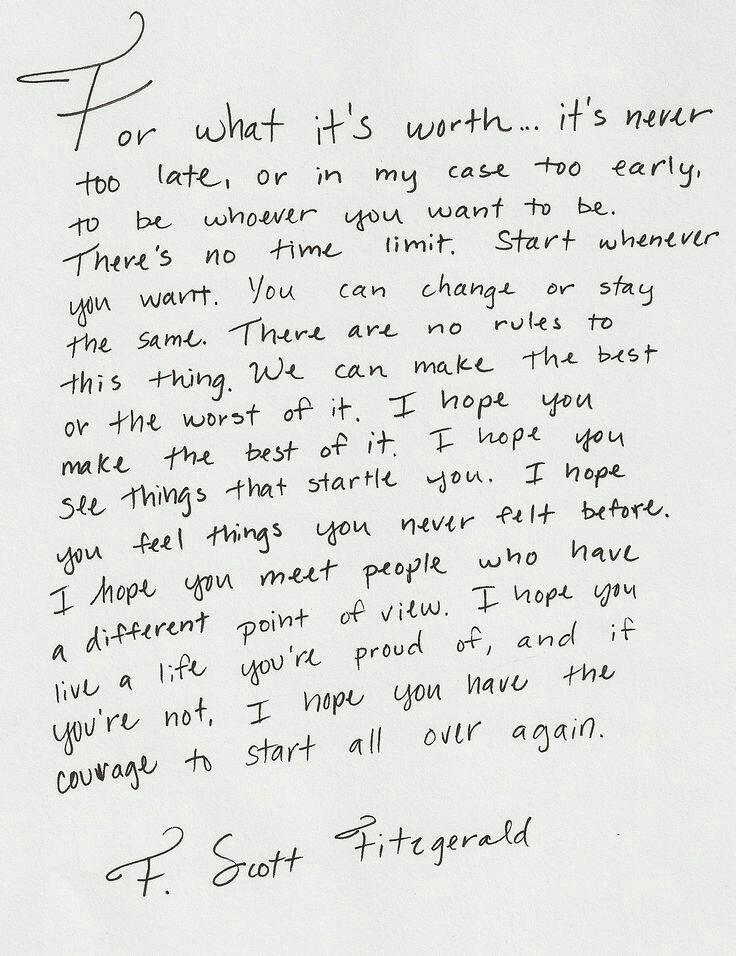 For what it's worth... it's never
too late, or in my case too early,
to be whoever you want to be.
There's no time limit. Start whenever
you want. You can change or stay
the same. There are no rules to
this thing. We can make the best
or the worst of it. I hope you
make the best of it. I hope you
see things that startle you. I hope
you feel things you never felt before.
I hope you meet people who have
a different point of view. I hope you
live a life you're proud of, and if
you're not, I hope you have the
courage to start all over again.
F. Scott Fitzgerald